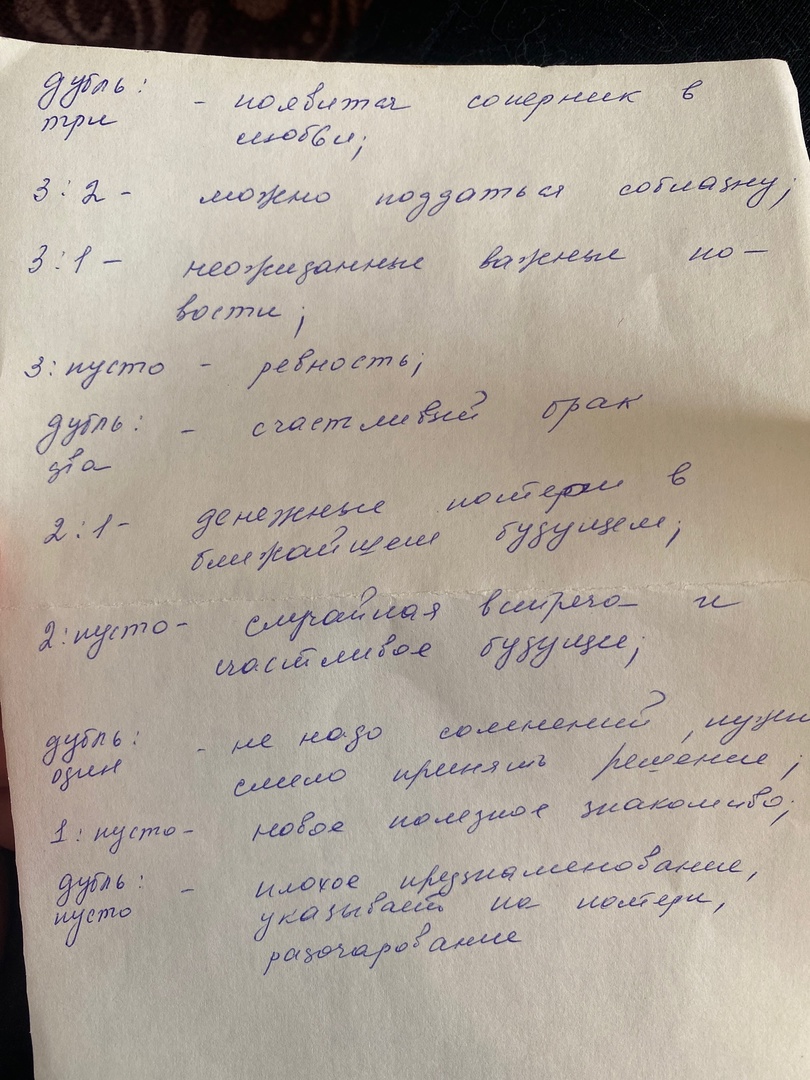 дубль: - появится соперник в
три любви;
3:2 - можно поддаться соблазну;
3:1 - неожиданные важные но-
вости;
3:пусто - ревность;
дубль: - счастливый брак
два
2:1- денежные потери в
ближайшем будущем;
2:пусто- случайная встреча и
счастливое будущее;
дубль: - не надо сомнений, нужно
один смело принять решение;
1:пусто- новое полезное знакомство;
дубль: - плохое предзнаменование,
пусто указывает на потери,
разочарование